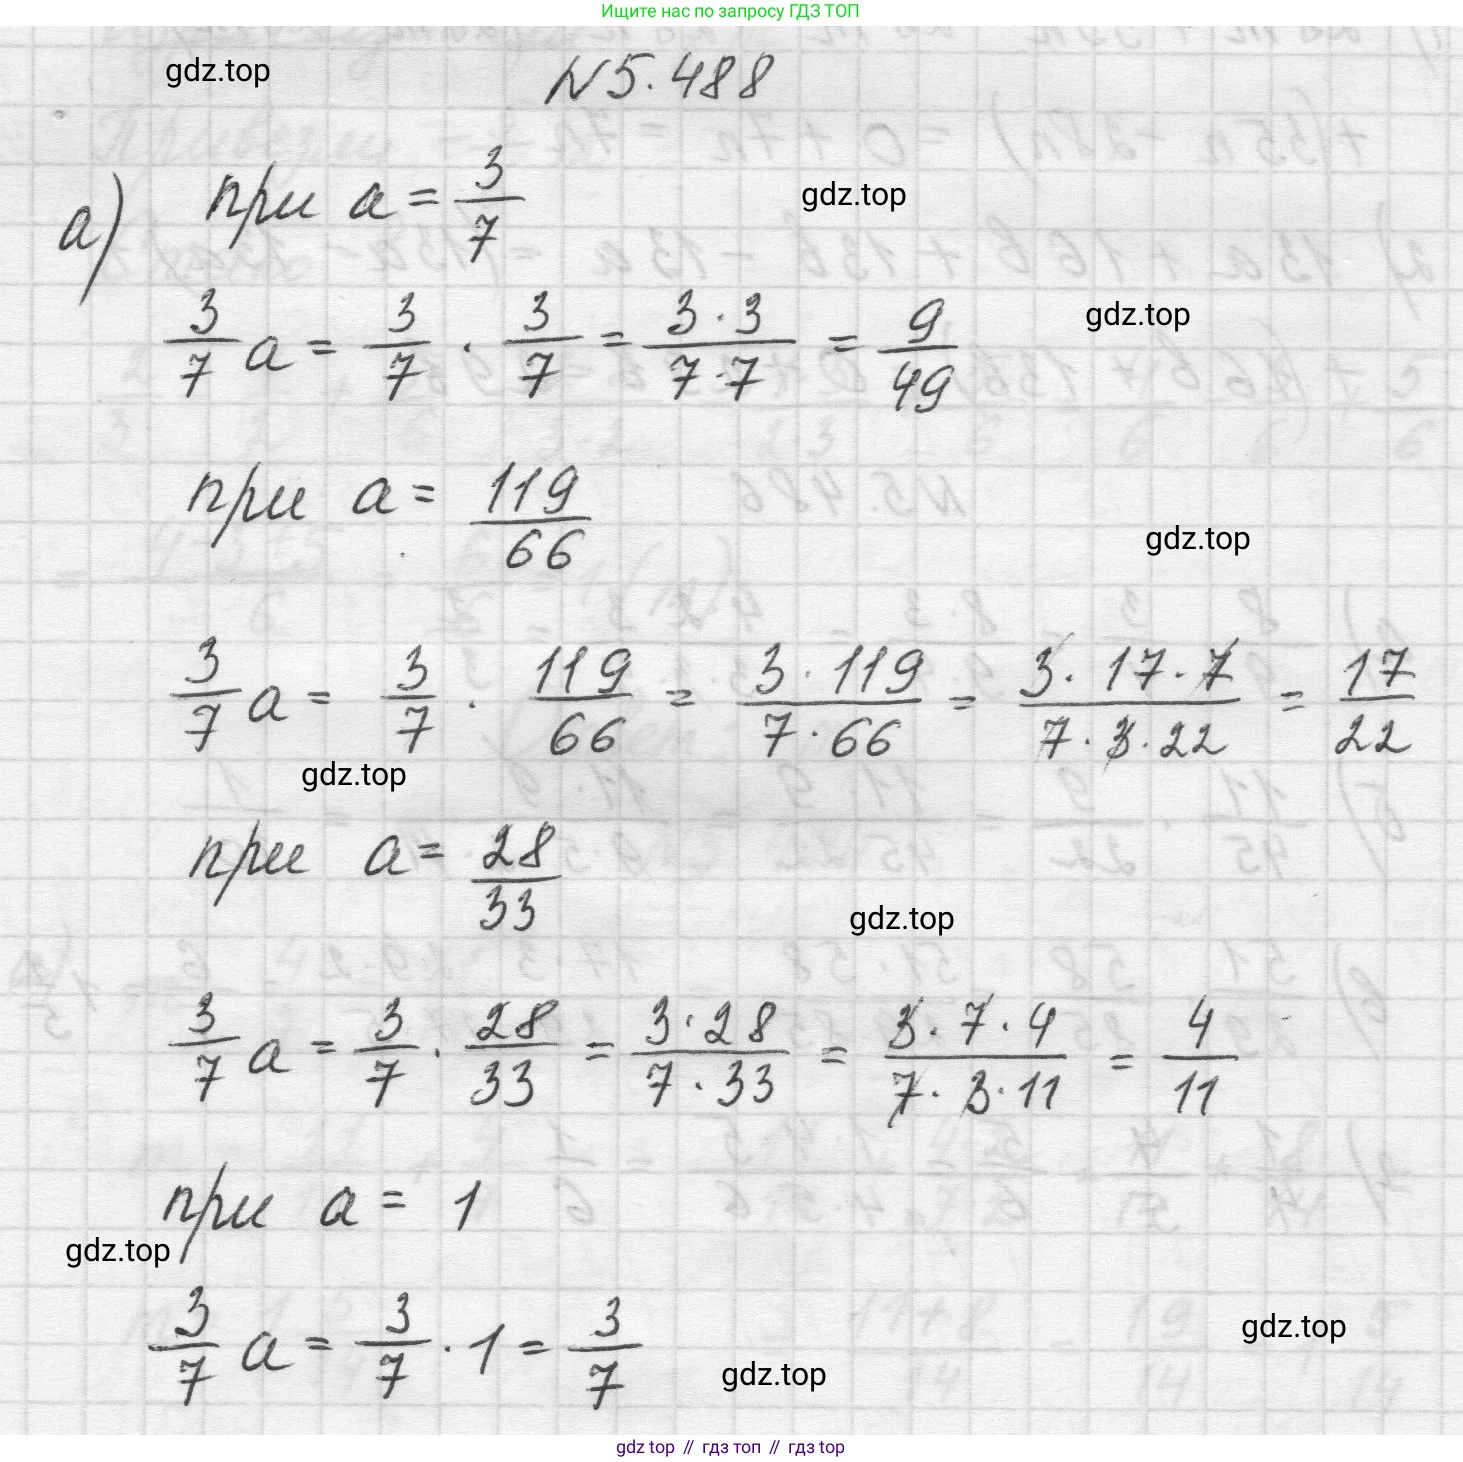 Ищите нас по запросу ГДЗ ТОП
gdz.top
N 5.488
а) при a = 3/7
gdz.top
3/7 a = 3/7 · 3/7 = 3·3/7·7 = 9/49
gdz.top
при a = 119/66
gdz.top
3/7 a = 3/7 · 119/66 = 3·119/7·66 = 3·17·7/7·3·22 = 17/22
gdz.top
при a = 28/33
gdz.top
3/7 a = 3/7 · 28/33 = 3·28/7·33 = 3·7·4/7·3·11 = 4/11
при a = 1
gdz.top
3/7 a = 3/7 · 1 = 3/7
gdz.top
gdz.top
gdz top // гдз топ // гдз top